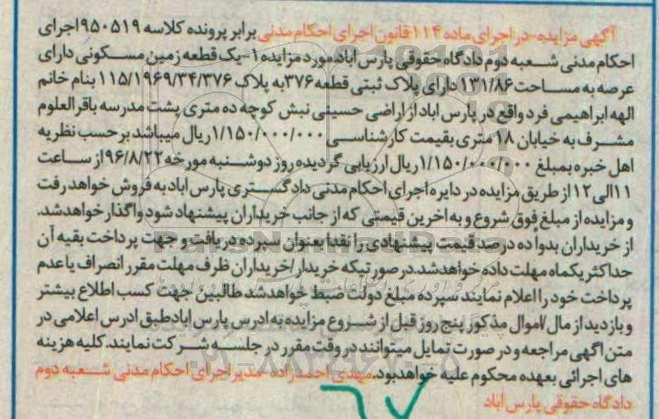 آگهی مزایده-در اجرای ماده ۱۱۴ قانون اجرای احکام مدنی برابر پرونده کلاسه ۹۵۰۵۱۹ اجرای
احکام مدنی شعبه دوم دادگاه حقوقی پارس اباد مورد مزایده ۱-یک قطعه زمین مسکونی دارای
عرصه به مساحت ۱۳۱/۸۶ دارای پلاک ثبتی قطعه ۳۷۶ به پلاک ۱۱۵/۱۹۶۹/۳۴/۳۷۶ بنام خانم
الهه ابراهیمی فرد واقع در پارس اباد از اراضی حسینی نبش کوچه ده متری پشت مدرسه باقرالعلوم
مشرف به خیابان ۱۸ متری بقیمت کارشناسی ۱/۱۵۰/۰۰۰/۰۰۰ ریال میباشد برحسب نظریه
اهل خبره بمبلغ ۱/۱۵۰/۰۰۰/۰۰۰ ریال ارزیابی گردیده روز دوشنبه مورخه ۹۶/۸/۲۲ از ساعت
۱۱ الی ۱۲ از طریق مزایده در دایره اجرای احکام مدنی دادگستری پارس اباد به فروش خواهد رفت
و مزایده از مبلغ فوق شروع و به اخرین قیمتی که از جانب خریداران پیشنهاد شود واگذار خواهدشد.
از خریداران بدواً ده درصد قیمت پیشنهادی را نقدا بعنوان سپرده دریافت و جهت پرداخت بقیه آن
حداکثر یکماه مهلت داده خواهدشد. در صورتیکه خریدار/خریداران ظرف مهلت مقرر انصراف یا عدم
پرداخت خود را اعلام نمایند سپرده مبلغ دولت ضبط خواهدشد طالبین جهت کسب اطلاع بیشتر
و بازدید از مال/اموال مذکور پنج روز قبل از شروع مزایده به ادرس پارس اباد طبق ادرس اعلامی در
متن اگهی مراجعه و در صورت تمایل میتوانند در وقت مقرر در جلسه شرکت نمایند. کلیه هزینه
های اجرائی بعهده محکوم علیه خواهدبود. مهدی احمدزاده- مدیر اجرای احکام مدنی شعبه دوم
دادگاه حقوقی پارس اباد